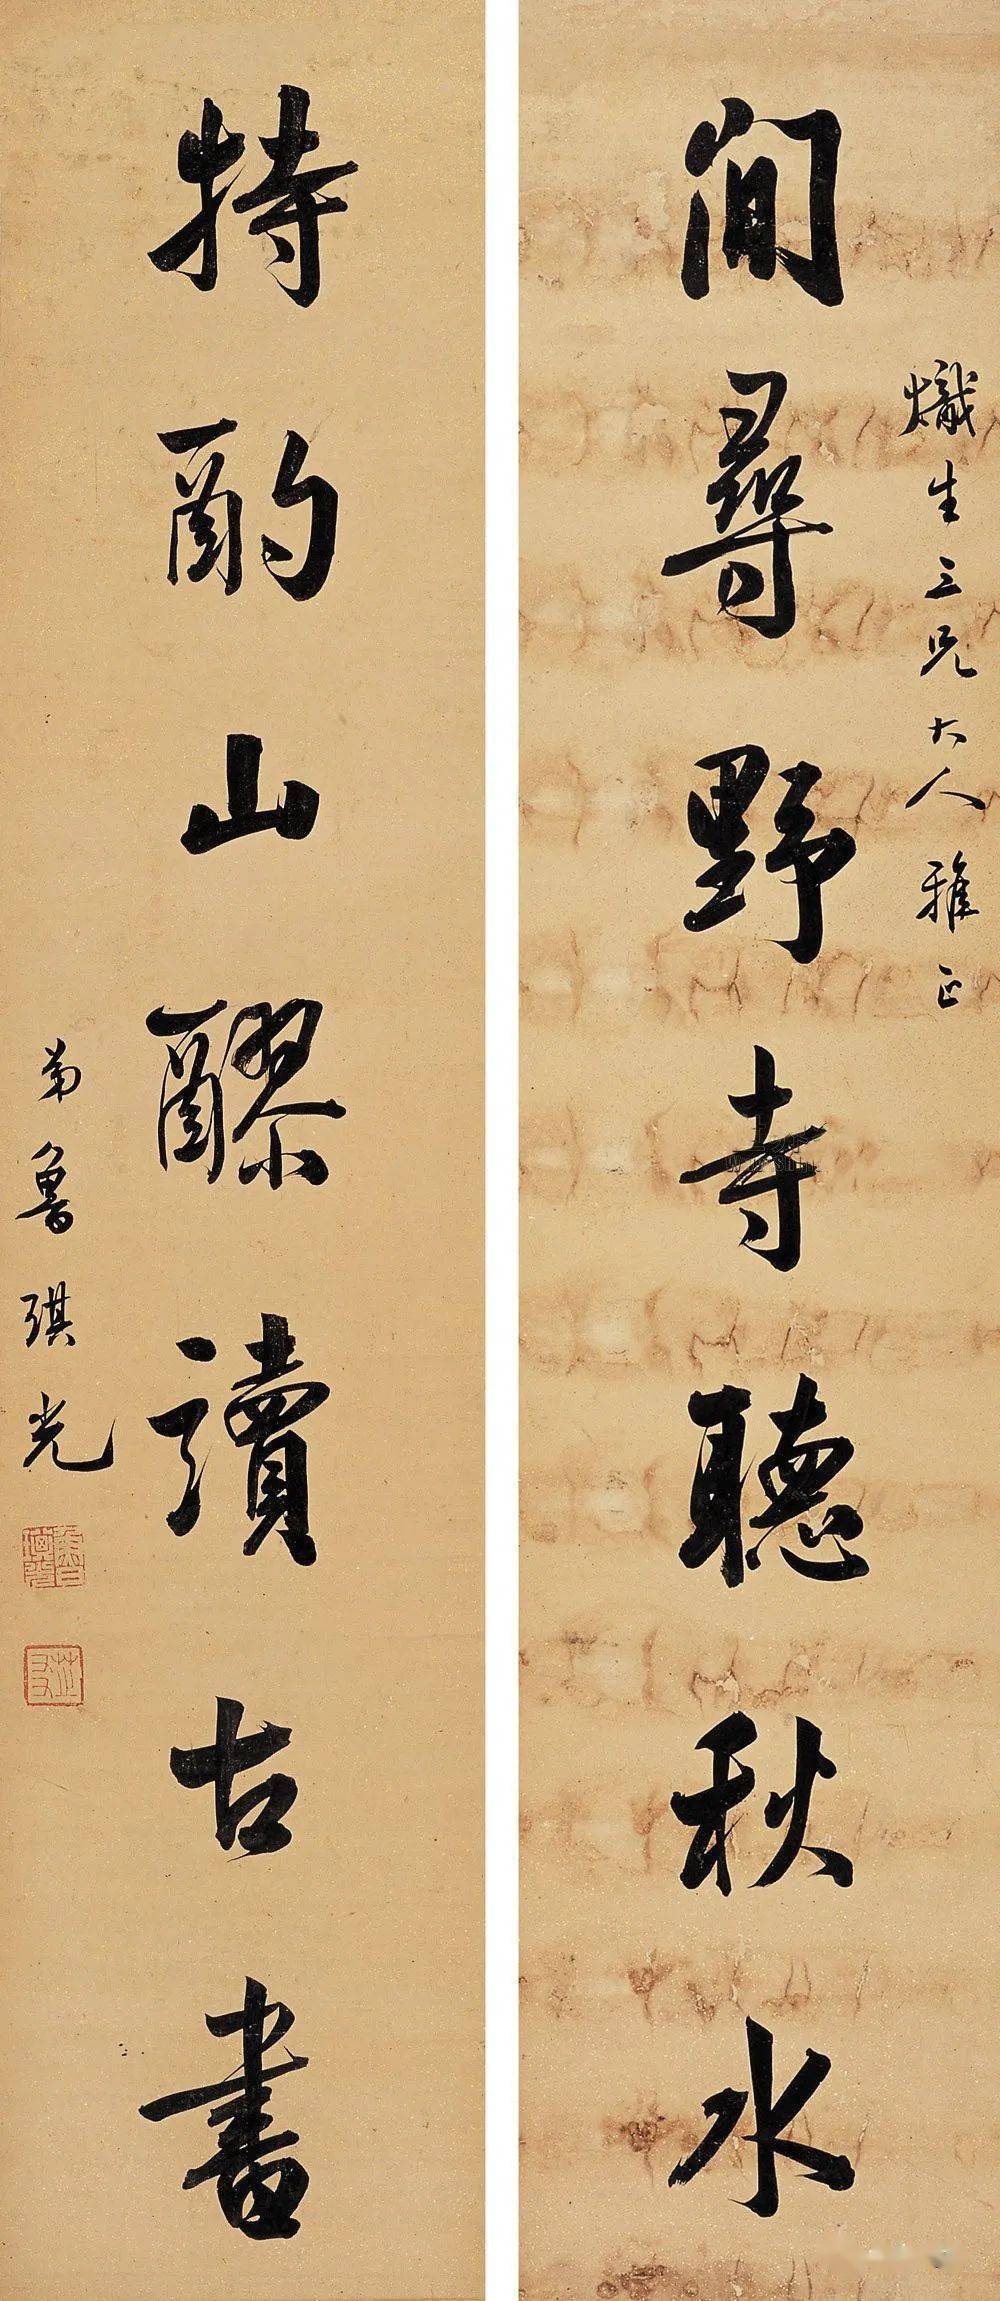 熾生三兄大人雅正
閒尋野寺聽秋水
特酌山醪讀古書
弟魯琪光